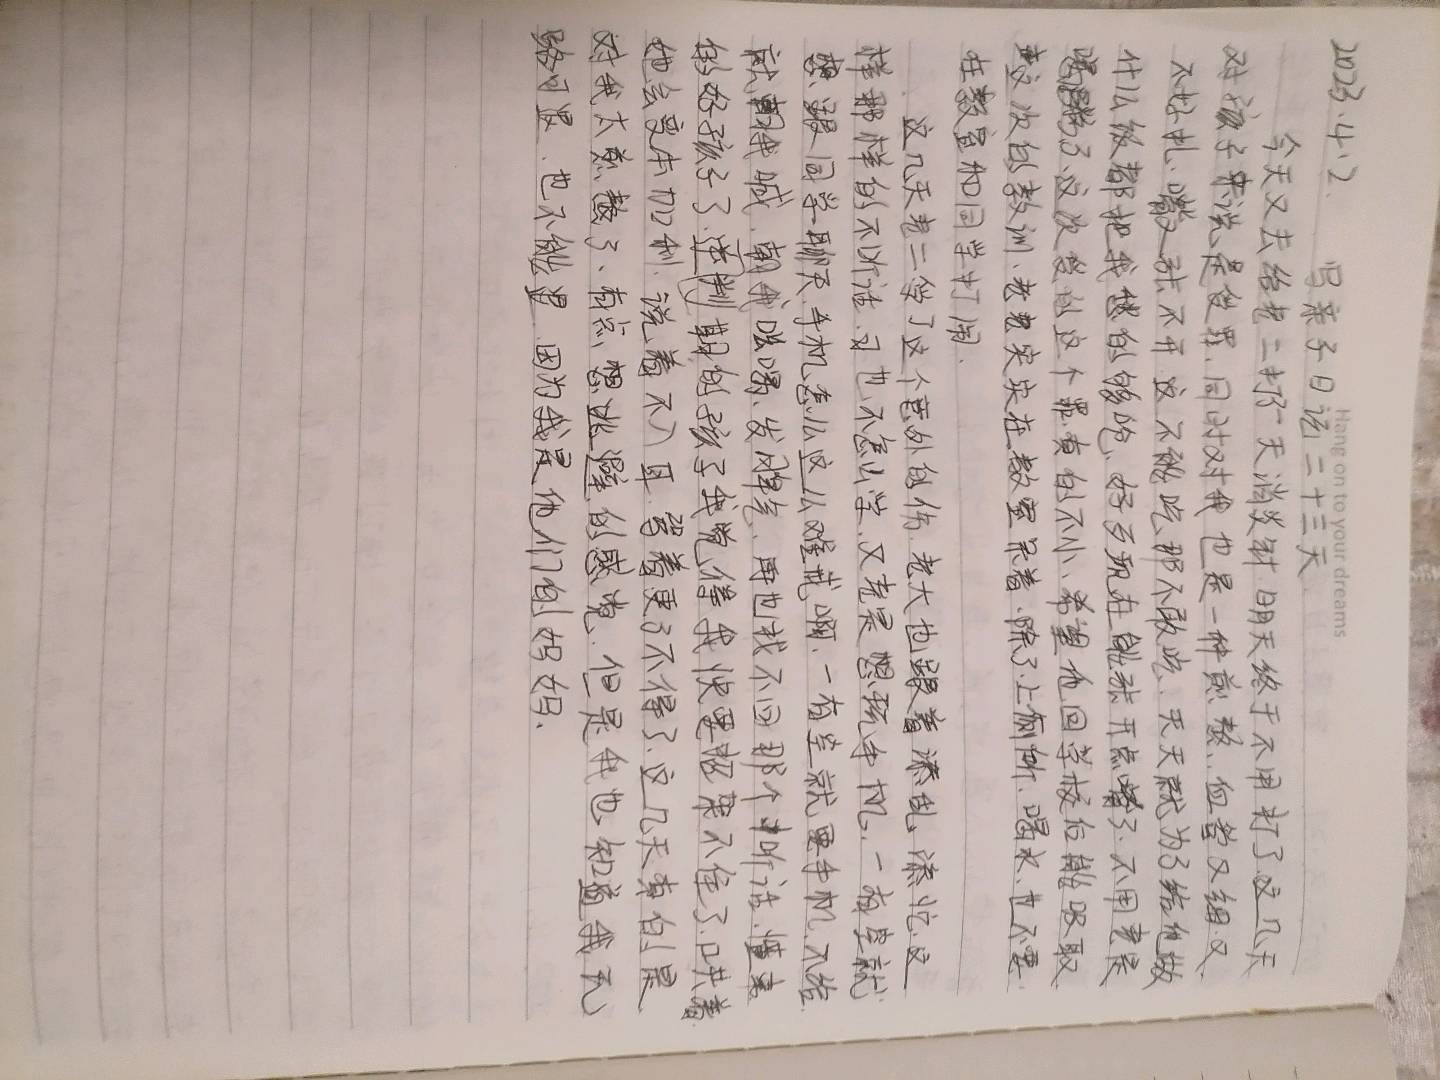 Hang on to your dreams
2023.4.2. 写亲子日记二十三天
今天又去给老二打了一天消炎针.明天终于不用打了.这几天
对孩子来说是受罪.同时对我也是一种煎熬.血管又细.又
不好扎.嘴又张不开.这不能吃那不敢吃.天天就为了给他做
什么饭都把我愁的够呛.好歹现在能张开点嘴了.不用老是
喝粥了.这次受的这个罪真的不小.希望他回学校后能吸取
这次的教训.老老实实在教室呆着.除了上厕所.喝水.也不要
在教室和同学打闹.
这几天老二受了这个意外的伤.老大也跟着添乱.添忙.这
样那样的不听话.习也不怎么学.又老是想玩手机.一有空就
想跟同学聊天.手机怎么这么难戒啊.一有空就要手机.不给
就朝我喊.朝我吆喝.发脾气.再也找不回那个听话.懂事
的好孩子了.逆判期的孩子我觉得我快要招架不住了.口头着
他会变本加利.说着不入耳.管着更了不得了.这几天真的是
对我太煎熬了.有点想逃避的感觉.但是我也知道我无
路可退.也不能退.因为我是他们的妈妈.